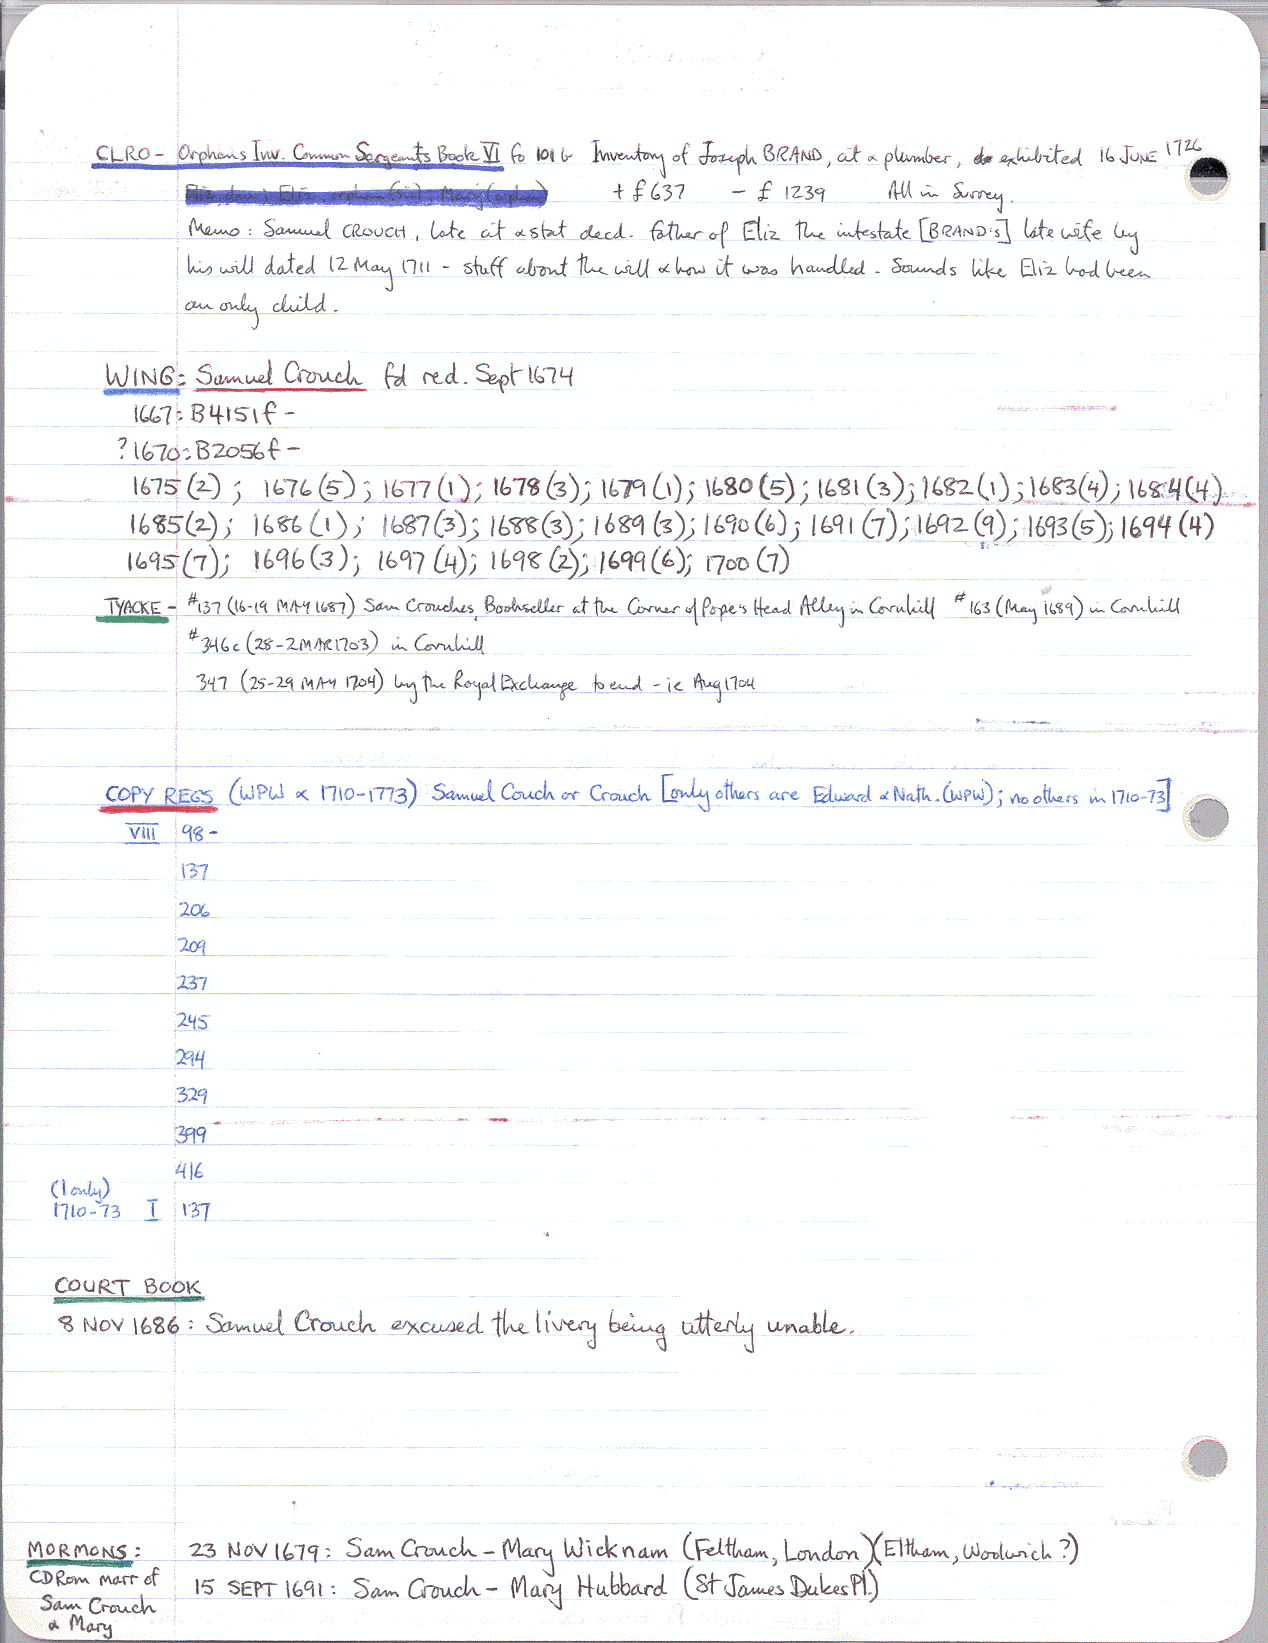 CLRO - Orphans Inv. Common Sargeants Book VI fo 101b Inventory of Joseph BRAND, cit & plumber, exhibited 16 JUNE 1726
+ £637 - £1239 All in Surrey.
Memo: Samuel CROUCH, late cit & stat decd. father of Eliz the intestate [BRAND's] late wife by
his will dated 12 May 1711 - stuff about the will & how it was handled. Sounds like Eliz had been
an only child.
WING: Samuel Crouch fd red. Sept 1674
1667: B4151f -
? 1670: B2056f -
1675 (2); 1676 (5); 1677 (1); 1678 (3); 1679 (1); 1680 (5); 1681 (3); 1682 (1); 1683 (4); 1684 (4)
1685 (2); 1686 (1); 1687 (3); 1688 (3); 1689 (3); 1690 (6); 1691 (7); 1692 (9); 1693 (5); 1694 (4)
1695 (7); 1696 (3); 1697 (4); 1698 (2); 1699 (6); 1700 (7)
TYACKE - #137 (16-19 MAY 1687) Sam Crouches, Bookseller at the Corner of Pope's Head Alley in Cornhill #163 (May 1689) in Cornhill
#346c (28-2 MAR 1703) in Cornhill
347 (25-29 MAY 1704) by the Royal Exchange to end - ie Aug 1704
COPY REGS (WPW & 1710-1773) Samuel Couch or Crouch [only others are Edward & Nath. (WPW); no others in 1710-73]
VIII 98 -
137
206
209
237
245
294
329
399
416
(1 only)
1710-73 I 137
COURT BOOK
8 NOV 1686: Samuel Crouch excused the livery being utterly unable.
MORMONS: 23 NOV 1679: Sam Crouch - Mary Wicknam (Feltham, London)(Eltham, Woolwich?)
CDRom marr of 15 SEPT 1691: Sam Crouch - Mary Hubbard (St James Dukes Pl.)
Sam Crouch
& Mary